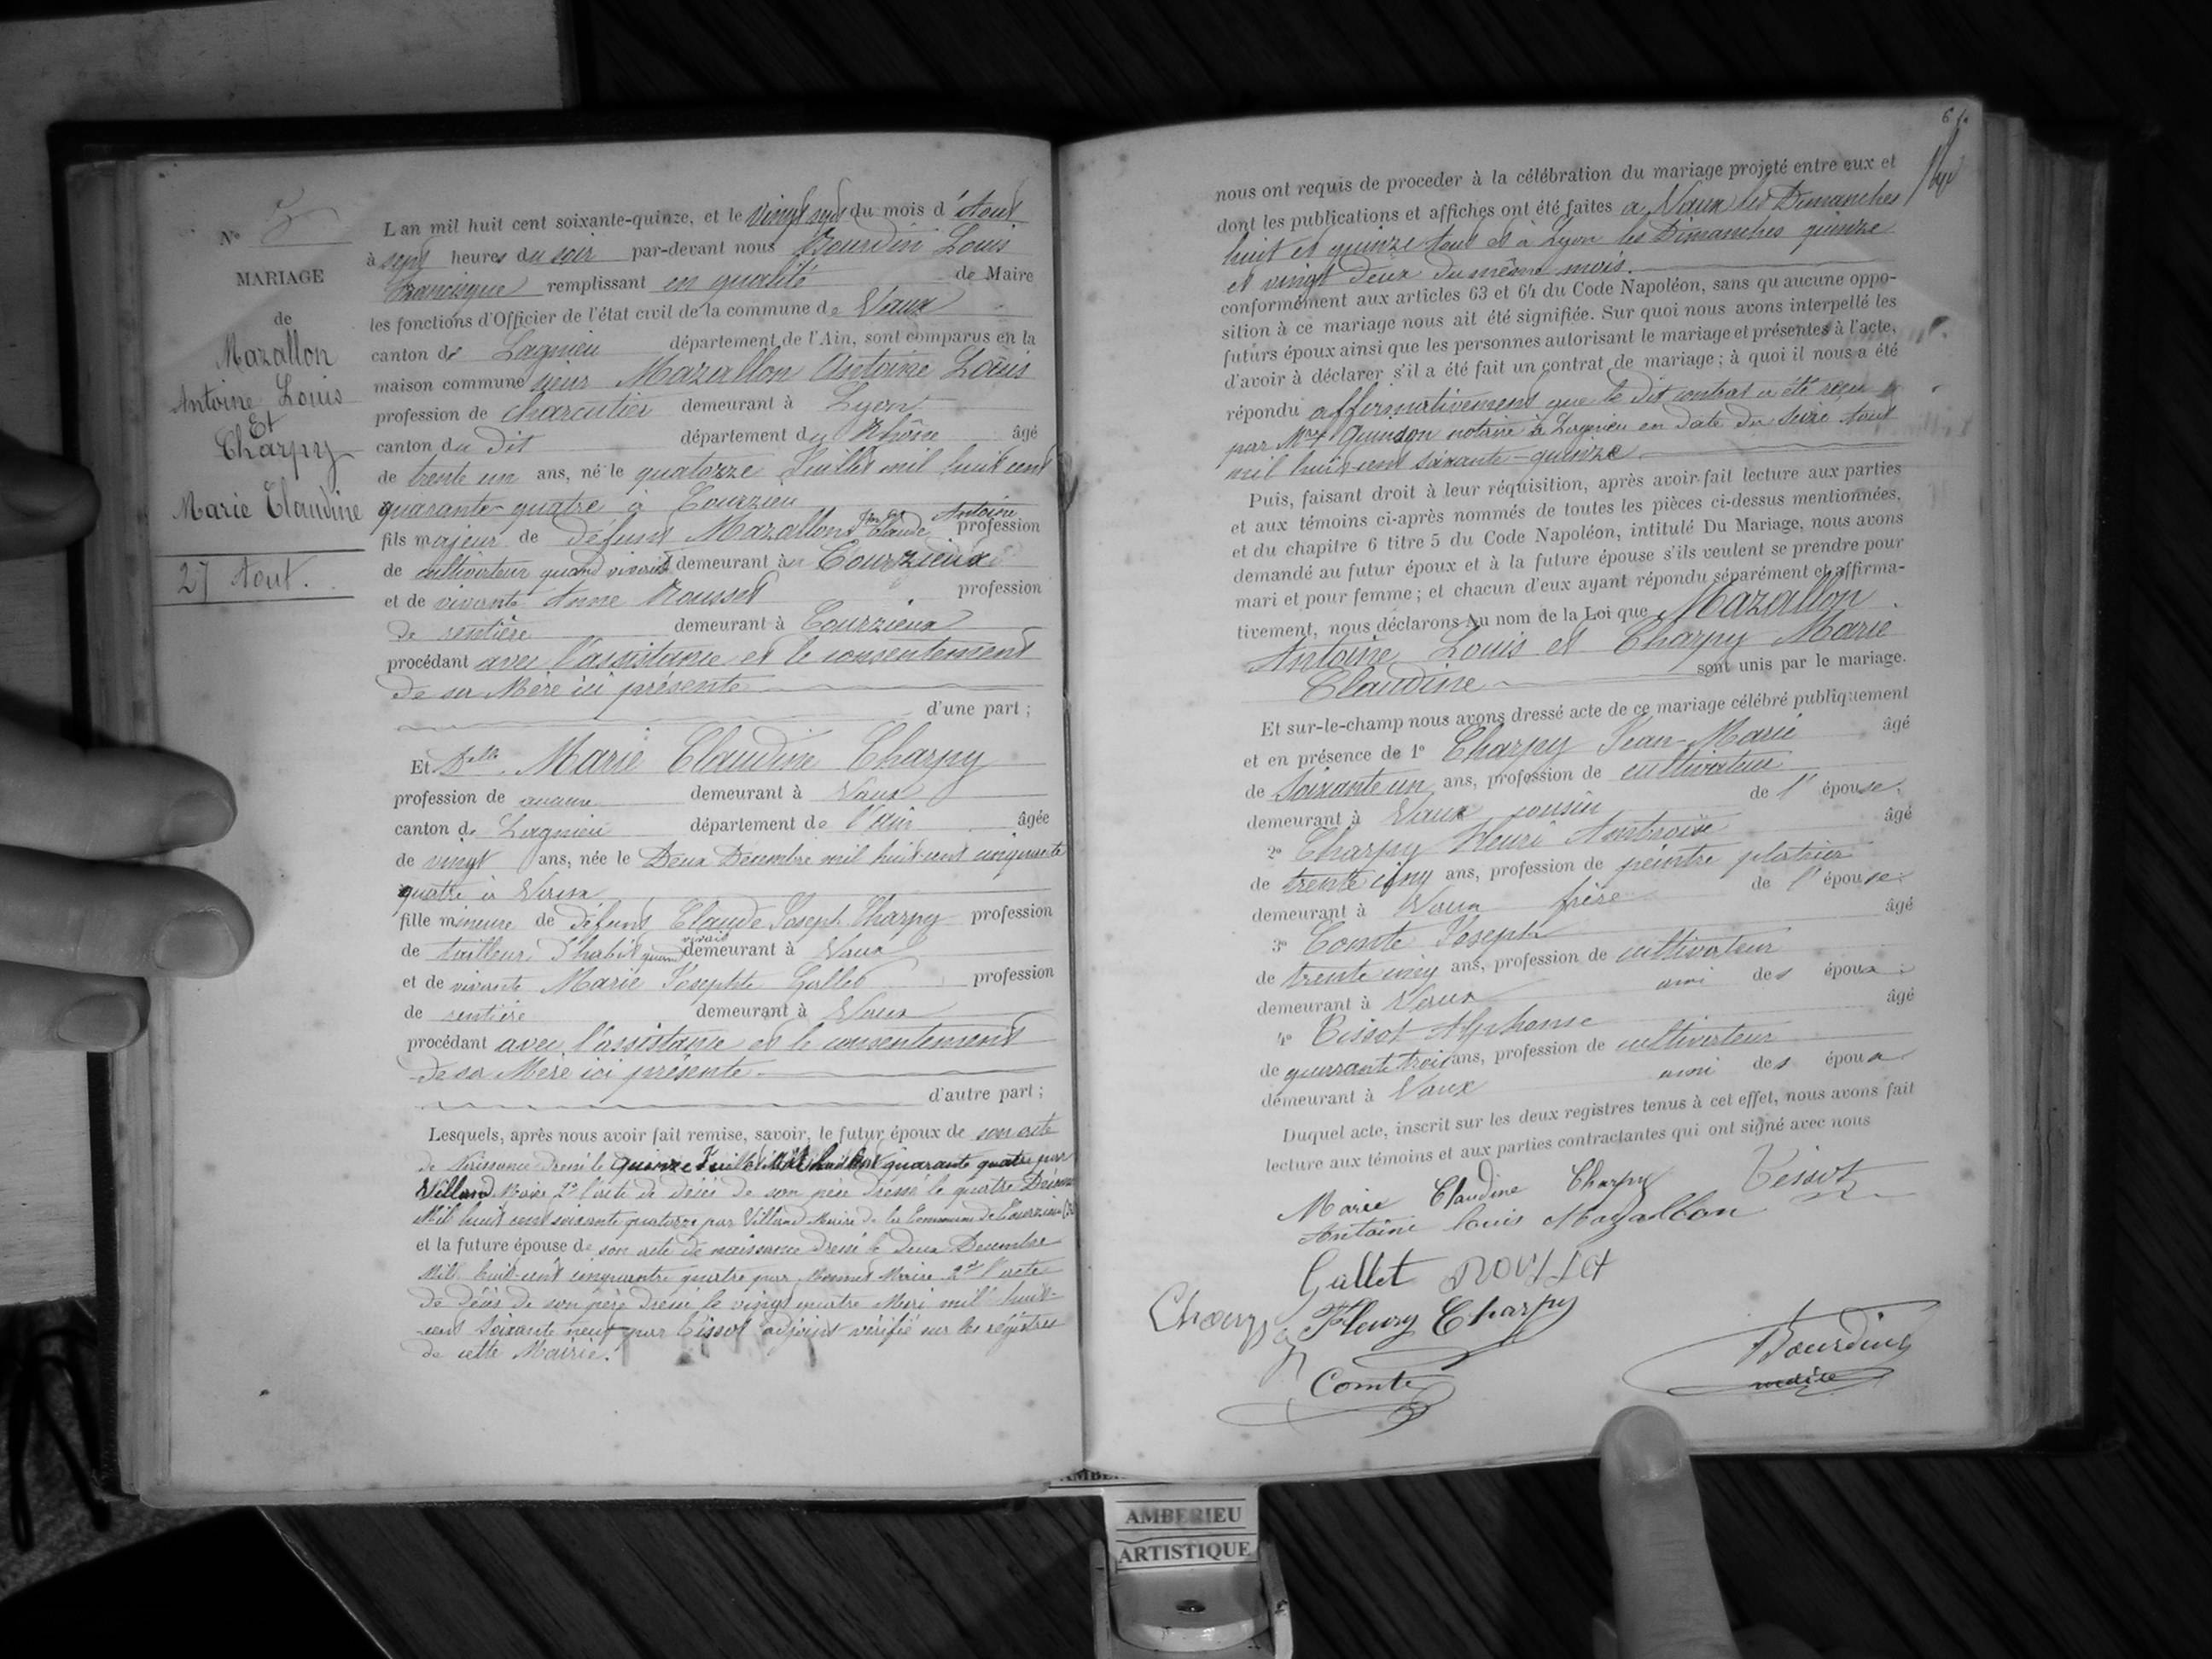 N° 5
MARIAGE
de
Mazallon
Antoine Louis
Et
Charpy
Marie Claudine
27 Aout.
L'an mil huit cent soixante-quinze, et le vingt sept du mois d'Aout
à sept heures du soir par-devant nous Bourdin Louis
Francisque remplissant en qualité de Maire
les fonctions d'Officier de l'état civil de la commune de Vaux
canton de Lagnieu département de l'Ain, sont comparus en la
maison commune sieur Mazallon Antoine Louis
profession de charcutier demeurant à Lyon
canton du dit département du Rhône âgé
de trente un ans, né le quatorze Juillet mil huit cent
quarante-quatre à Courzieu
fils majeur de défunt Mazallon Claude Antoine profession
de cultivateur quand vivait demeurant à Courzieux
et de vivante Anne Rousset profession
de rentière demeurant à Courzieux
procédant avec l'assistance et le consentement
de sa Mère ici présente
d'une part ;
Et Delle Marie Claudine Charpy
profession de aucune demeurant à Vaux
canton de Lagnieu département de l'Ain âgée
de vingt ans, née le Deux Décembre mil huit cent cinquante
quatre à Vaux
fille mineure de défunt Claude Joseph Charpy profession
de tailleur d'habit quand vivait demeurant à Vaux
et de vivante Marie Josephte Gallet profession
de rentière demeurant à Vaux
procédant avec l'assistance et le consentement
de sa Mère ici présente
d'autre part ;
Lesquels, après nous avoir fait remise, savoir, le futur époux de son acte
de Naissance dressé le quinze Juillet Mil huit cent quarante quatre par
Villand Maire 2° l'acte de décès de son père dressé le quatre Décembre
Mil huit cent soixante quatorze par Villand Maire de la Commune de Courzieu
et la future épouse de son acte de naissance dressé le deux Decembre
Mil huit cent cinquante quatre par Maire 2° l'acte
de décès de son père dressé le vingt quatre Mai mil huit-
cent soixante neuf par Tissot adjoint vérifié sur les régistres
de cette Mairie.
6
nous ont requis de proceder à la célébration du mariage projeté entre eux et
dont les publications et affiches ont été faites a Vaux les Dimanches
huit et quinze Aout et à Lyon les Dimanches quinze
et vingt deux du même mois.
conformément aux articles 63 et 64 du Code Napoléon, sans qu'aucune oppo-
sition à ce mariage nous ait été signifiée. Sur quoi nous avons interpellé les
futurs époux ainsi que les personnes autorisant le mariage et présentes à l'acte,
d'avoir à déclarer s'il a été fait un contrat de mariage ; à quoi il nous a été
répondu affirmativement que le dit contrat a été reçu
par Mre Guindon notaire à Lagnieu en date du seize Aout
mil huit-cent soixante-quinze
Puis, faisant droit à leur réquisition, après avoir fait lecture aux parties
et aux témoins ci-après nommés de toutes les pièces ci-dessus mentionnées,
et du chapitre 6 titre 5 du Code Napoléon, intitulé Du Mariage, nous avons
demandé au futur époux et à la future épouse s'ils veulent se prendre pour
mari et pour femme ; et chacun d'eux ayant répondu séparément et affirma-
tivement, nous déclarons Au nom de la Loi que Mazallon
Antoine Louis et Charpy Marie
Claudine sont unis par le mariage.
Et sur-le-champ nous avons dressé acte de ce mariage célébré publiquement
et en présence de 1° Charpy Jean-Marie âgé
de Soixante un ans, profession de cultivateur
demeurant à Vaux cousin de l'épouse.
2° Charpy Fleuri Ambroise âgé
de trente cinq ans, profession de peintre platrier
demeurant à Vaux frère de l'épouse.
3° Comte Joseph âgé
de trente cinq ans, profession de cultivateur
demeurant à Vaux ami des époux.
4° Tissot Alphonse âgé
de quarante trois ans, profession de cultivateur
demeurant à Vaux ami des époux
Duquel acte, inscrit sur les deux registres tenus à cet effet, nous avons fait
lecture aux témoins et aux parties contractantes qui ont signé avec nous
Marie Claudine Charpy Tissot
Antoine Louis Mazallon
Gallet
Charpy Fleury Charpy
Comte
Bourdin
maire
AMBERIEU
ARTISTIQUE